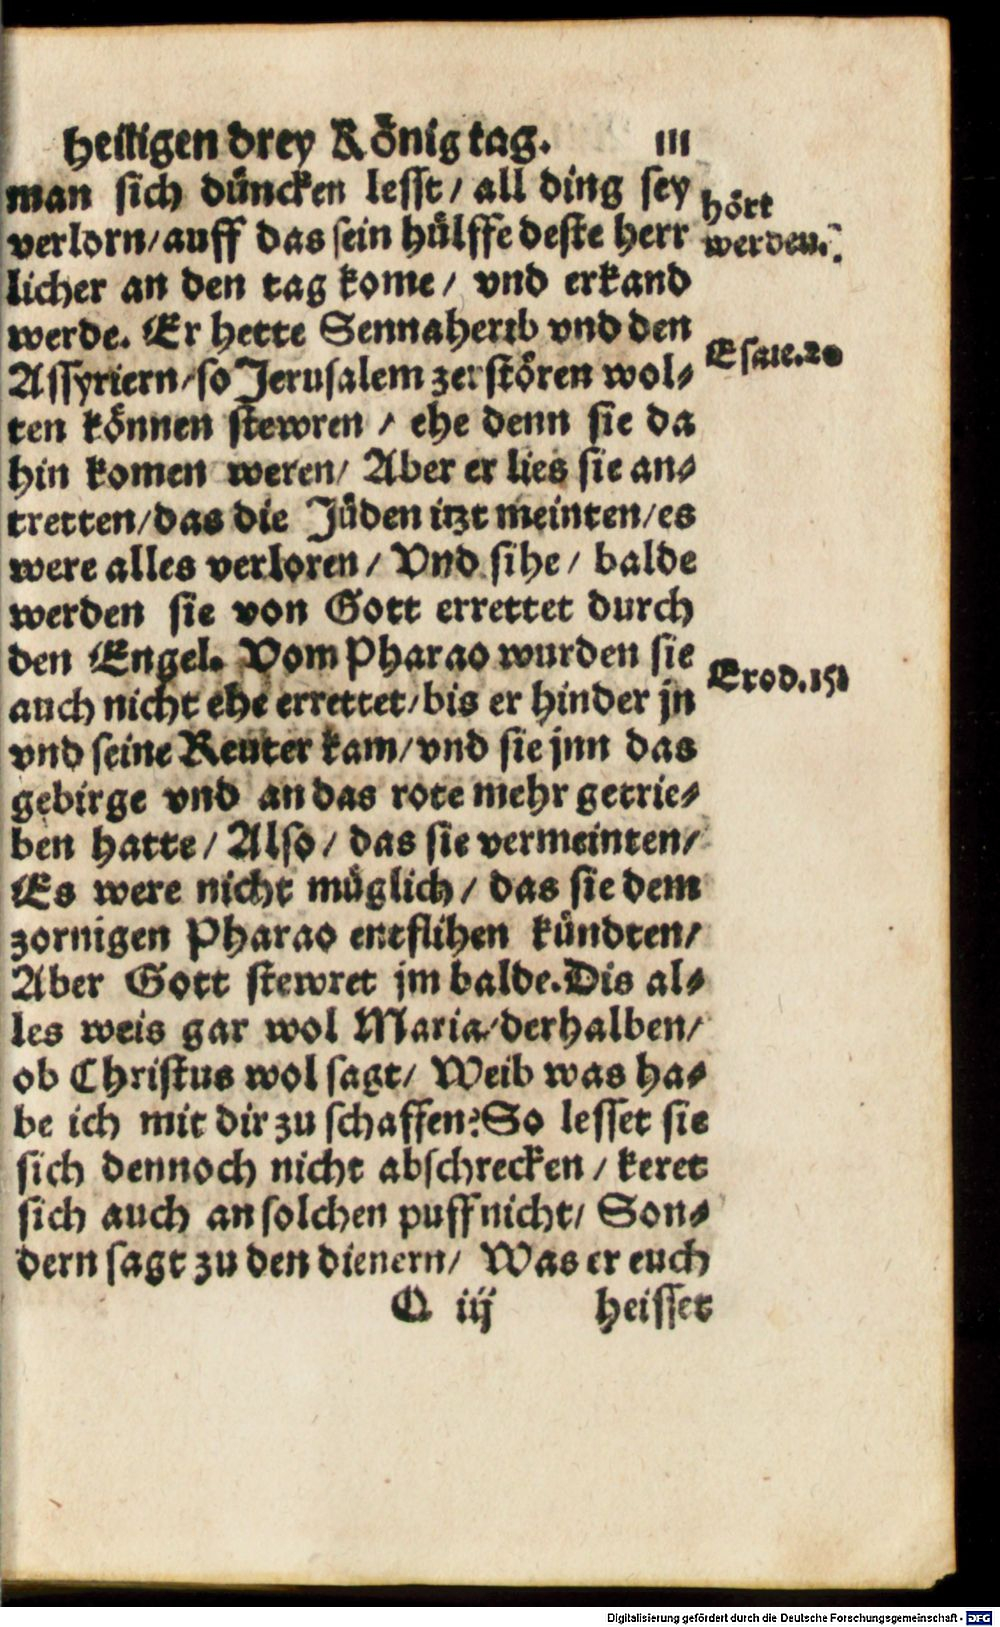 heiligen drey König tag. 111
man sich düncken lesst / all ding sey
verlorn / auff das sein hülffe deste herr
licher an den tag kome / vnd erkand
werde. Er hette Sennaherib vnd den
Assyriern / so Jerusalem zerstören wol⸗
ten können stewren / ehe denn sie da
hin komen weren / Aber er lies sie an⸗
tretten / das die Jüden itzt meinten / es
were alles verloren / Vnd sihe / balde
werden sie von Gott errettet durch
den Engel. Vom Pharao wurden sie
auch nicht ehe errettet / bis er hinder jn
vnd seine Reuter kam / vnd sie jnn das
gebirge vnd an das rote mehr getrie⸗
ben hatte / Also / das sie vermeinten /
Es were nicht müglich / das sie dem
zornigen Pharao entflihen kündten /
Aber Gott stewret jm balde. Dis al⸗
les weis gar wol Maria / derhalben /
ob Christus wol sagt / Weib was ha⸗
be ich mit dir zu schaffen? So lesset sie
sich dennoch nicht abschrecken / keret
sich auch an solchen puff nicht / Son⸗
dern sagt zu den dienern / Was er euch
O iij heisset
hört
werden.
Esaie.
Exod.
Digitalisierung gefördert durch die Deutsche Forschungsgemeinschaft - DFG